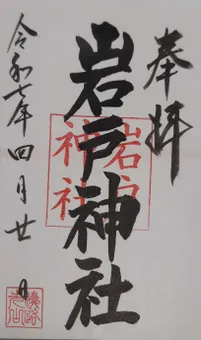 奉拝
岩戸神社
岩戸
神社
令和七年四月廿日